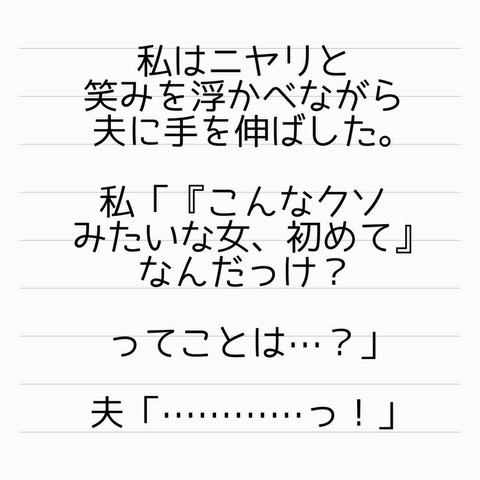 私はニヤリと
笑みを浮かべながら
夫に手を伸ばした。
私「『こんなクソ
みたいな女、初めて』
なんだっけ？
ってことは…？」
夫「…………っ！」